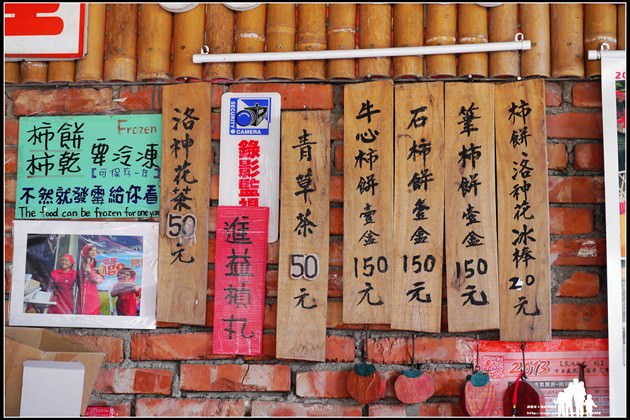 柿餅
柿乾
要冷凍
Frozen
【可保存一年】
不然就發霉給你看
The food can be frozen for one year
洛神花茶50元
SECURITY
CAMERA
錄影監視
進益槓丸
青草茶50元
牛心柿餅壹盒150元
石柿餅壹盒150元
筆柿餅壹盒150元
柿餅、洛神花冰棒20元
2013